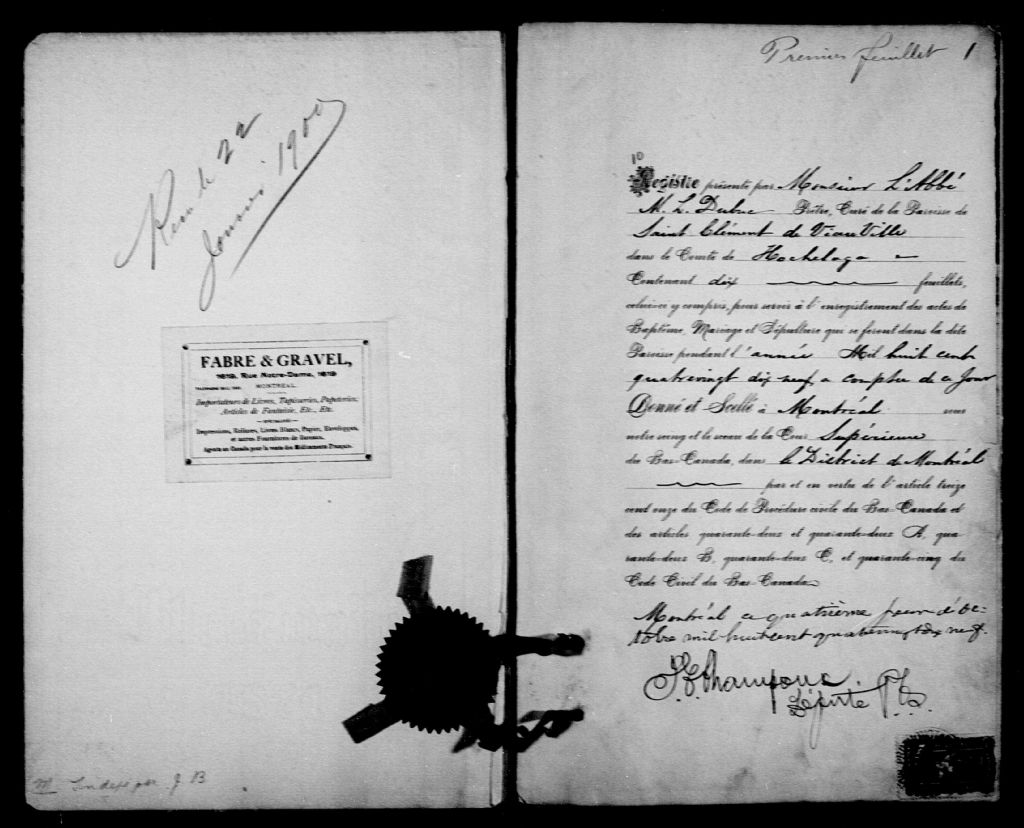 22
1900
FABRE & GRAVEL,
1619, Rue Notre-Dame, 1619
MONTREAL.
Importateurs de Livres, Tapisseries, Papeteries,
Articles de Fantaisie, Etc., Etc.
Impressions, Reliures, Livres Blancs, Papier, Enveloppes,
et autres Fournitures de Bureaux.
Agents au Canada pour la vente des Médicaments Français.
Index par J B
Premier feuillet 1
10
Registre présenté par Monsieur L'Abbé
M. L. Dubuc Prêtre, Curé de la Paroisse de
Saint Clément de ViauVille
dans le Comté de Hochelaga
Contenant dix feuillets,
celui-ci y compris, pour servir à l'enregistrement des actes de
Baptême, Mariage et Sépulture qui se feront dans la dite
Paroisse pendant l'année Mil huit cent
quatrevingt dix neuf, a compter de ce jour
Donné et Scellé à Montréal sous
notre seing et le sceau de la Cour Supérieure
du Bas-Canada, dans le District de Montréal
par et en vertu de l'article treize
cent onze du Code de Procédure civile du Bas-Canada et
des articles quarante-deux et quarante-deux A, qua
rante-deux B, quarante-deux C, et quarante-cinq du
Code Civil du Bas-Canada
Montréal ce quatrième jour d'Oc-
tobre mil huit cent quatrevingt dix neuf.
Député